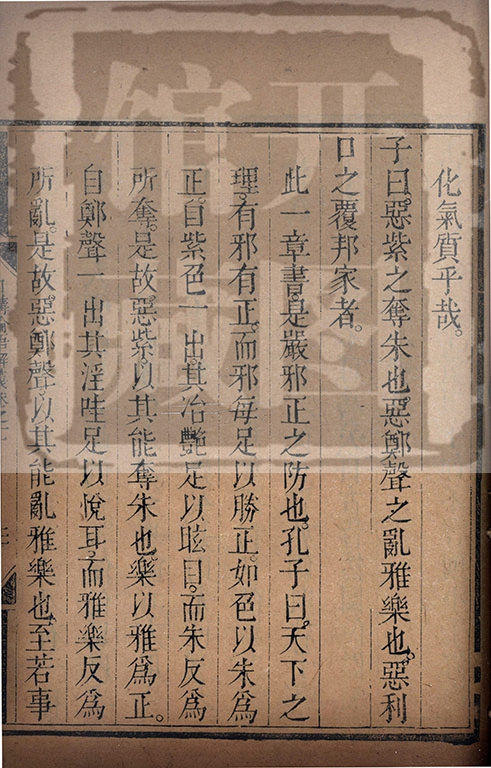 化氣質乎哉。
子曰。惡紫之奪朱也。惡鄭聲之亂雅樂也。惡利
口之覆邦家者。
此一章書。是嚴邪正之防也。孔子曰。天下之
理。有邪有正。而邪每足以勝正。如色以朱爲
正。自紫色一出。其冶艷足以眩目。而朱反爲
所奪。是故惡紫。以其能奪朱也。樂以雅爲正。
自鄭聲一出。其淫哇足以悅耳。而雅樂反爲
所亂。是故惡鄭聲。以其能亂雅樂也。至若事